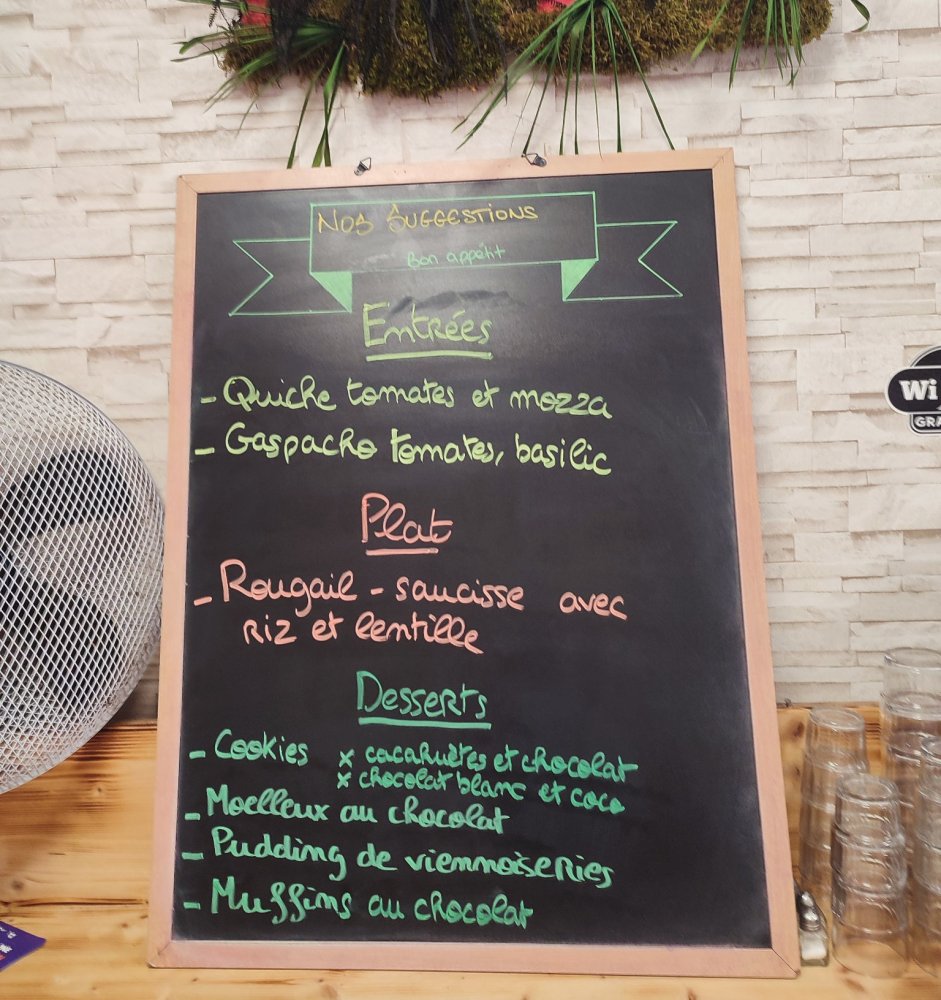 Nos Suggestions
Bon appétit
Entrées
- Quiche tomates et mozza
- Gaspacho tomates, basilic
Plat
- Rougail - saucisse avec
riz et lentille
Desserts
- Cookies x cacahuètes et chocolat
x chocolat blanc et coco
- Moelleux au chocolat
- Pudding de viennoiseries
- Muffins au chocolat
Wi
GRA